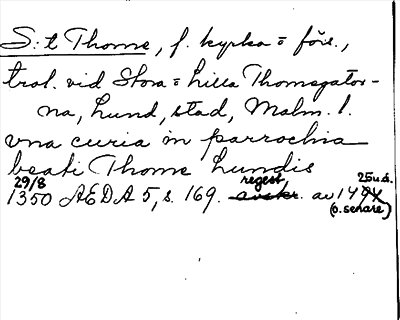 S:t Thome, f. kyrka = förs.,
trol. vid Stora = Lilla Thomegator-
na, Lund, stad, Malm. l.
vna curia in parrochia
beati Thome Lundis
29/8 regest 25 u.å.
1350 ÆDA 5, s. 169. avskr. av 149
(o. senare)